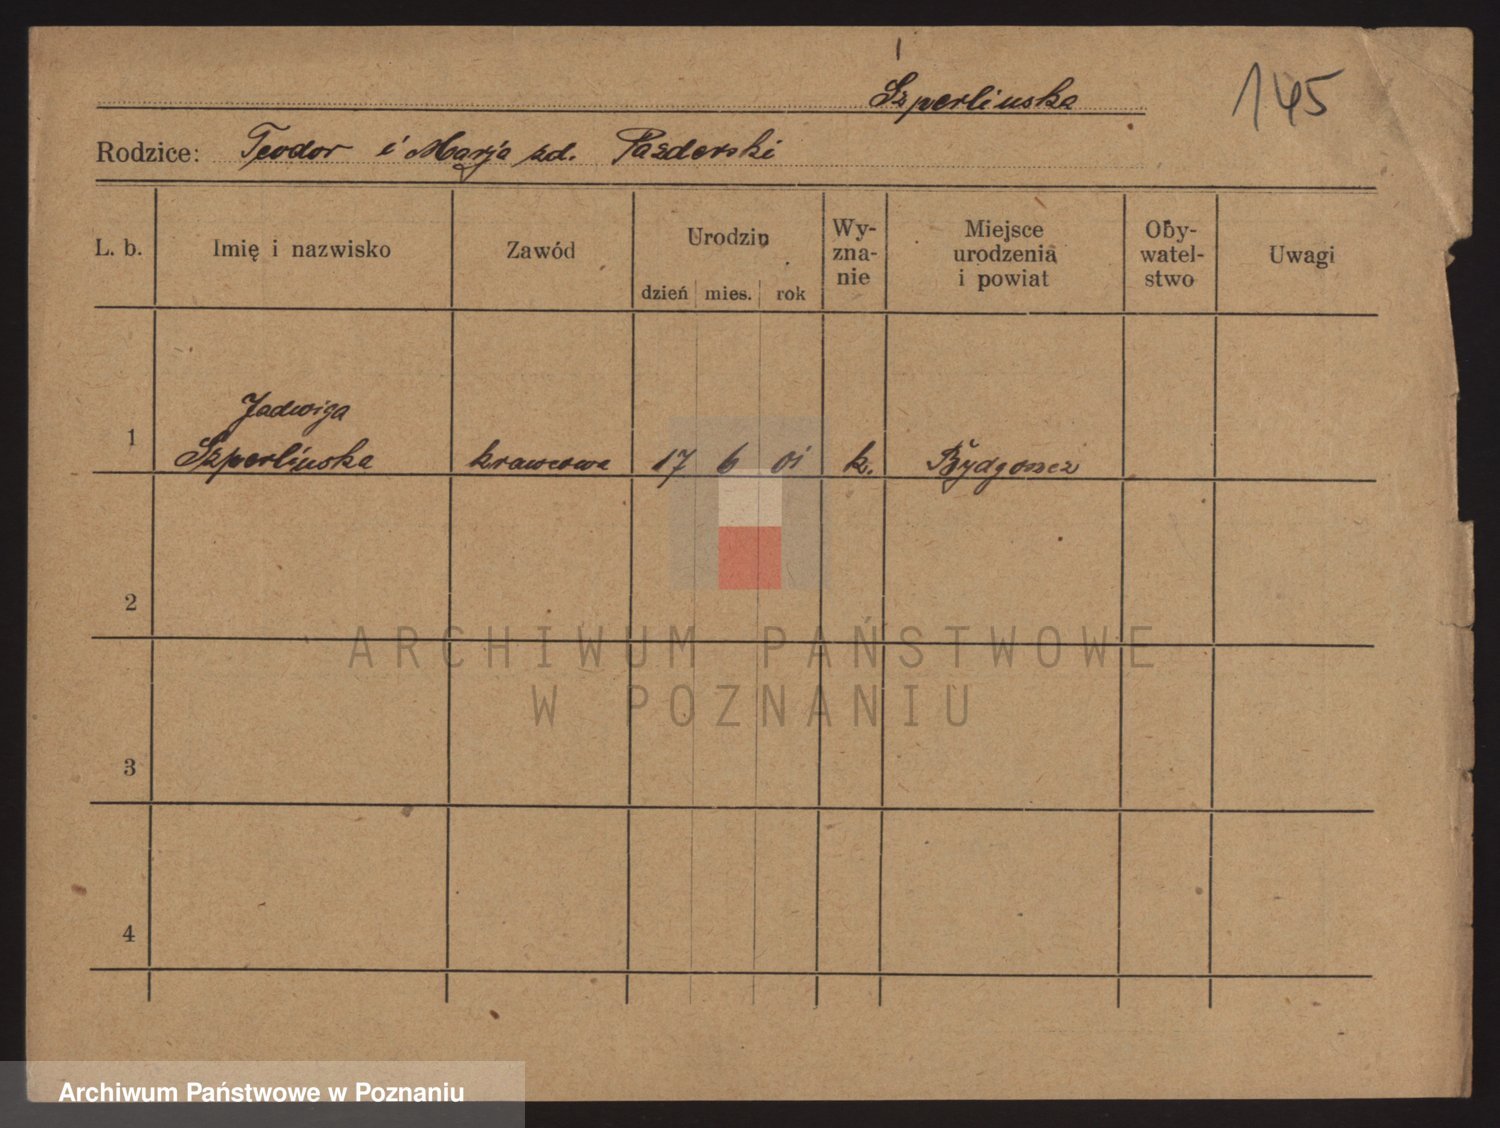 Szperlinska
145
Rodzice: Teodor i Marja zd. Pazderski
L. b. Imię i nazwisko Zawód Urodzin dzień mies. rok Wy-zna-nie Miejsce urodzenia i powiat Oby-watel-stwo Uwagi
Jadwiga
1 Szperlinska krawcowa 17 6 01 k. Bydgoszcz
2
ARCHIWUM PAŃSTWOWE
W POZNANIU
3
4
Archiwum Państwowe w Poznaniu